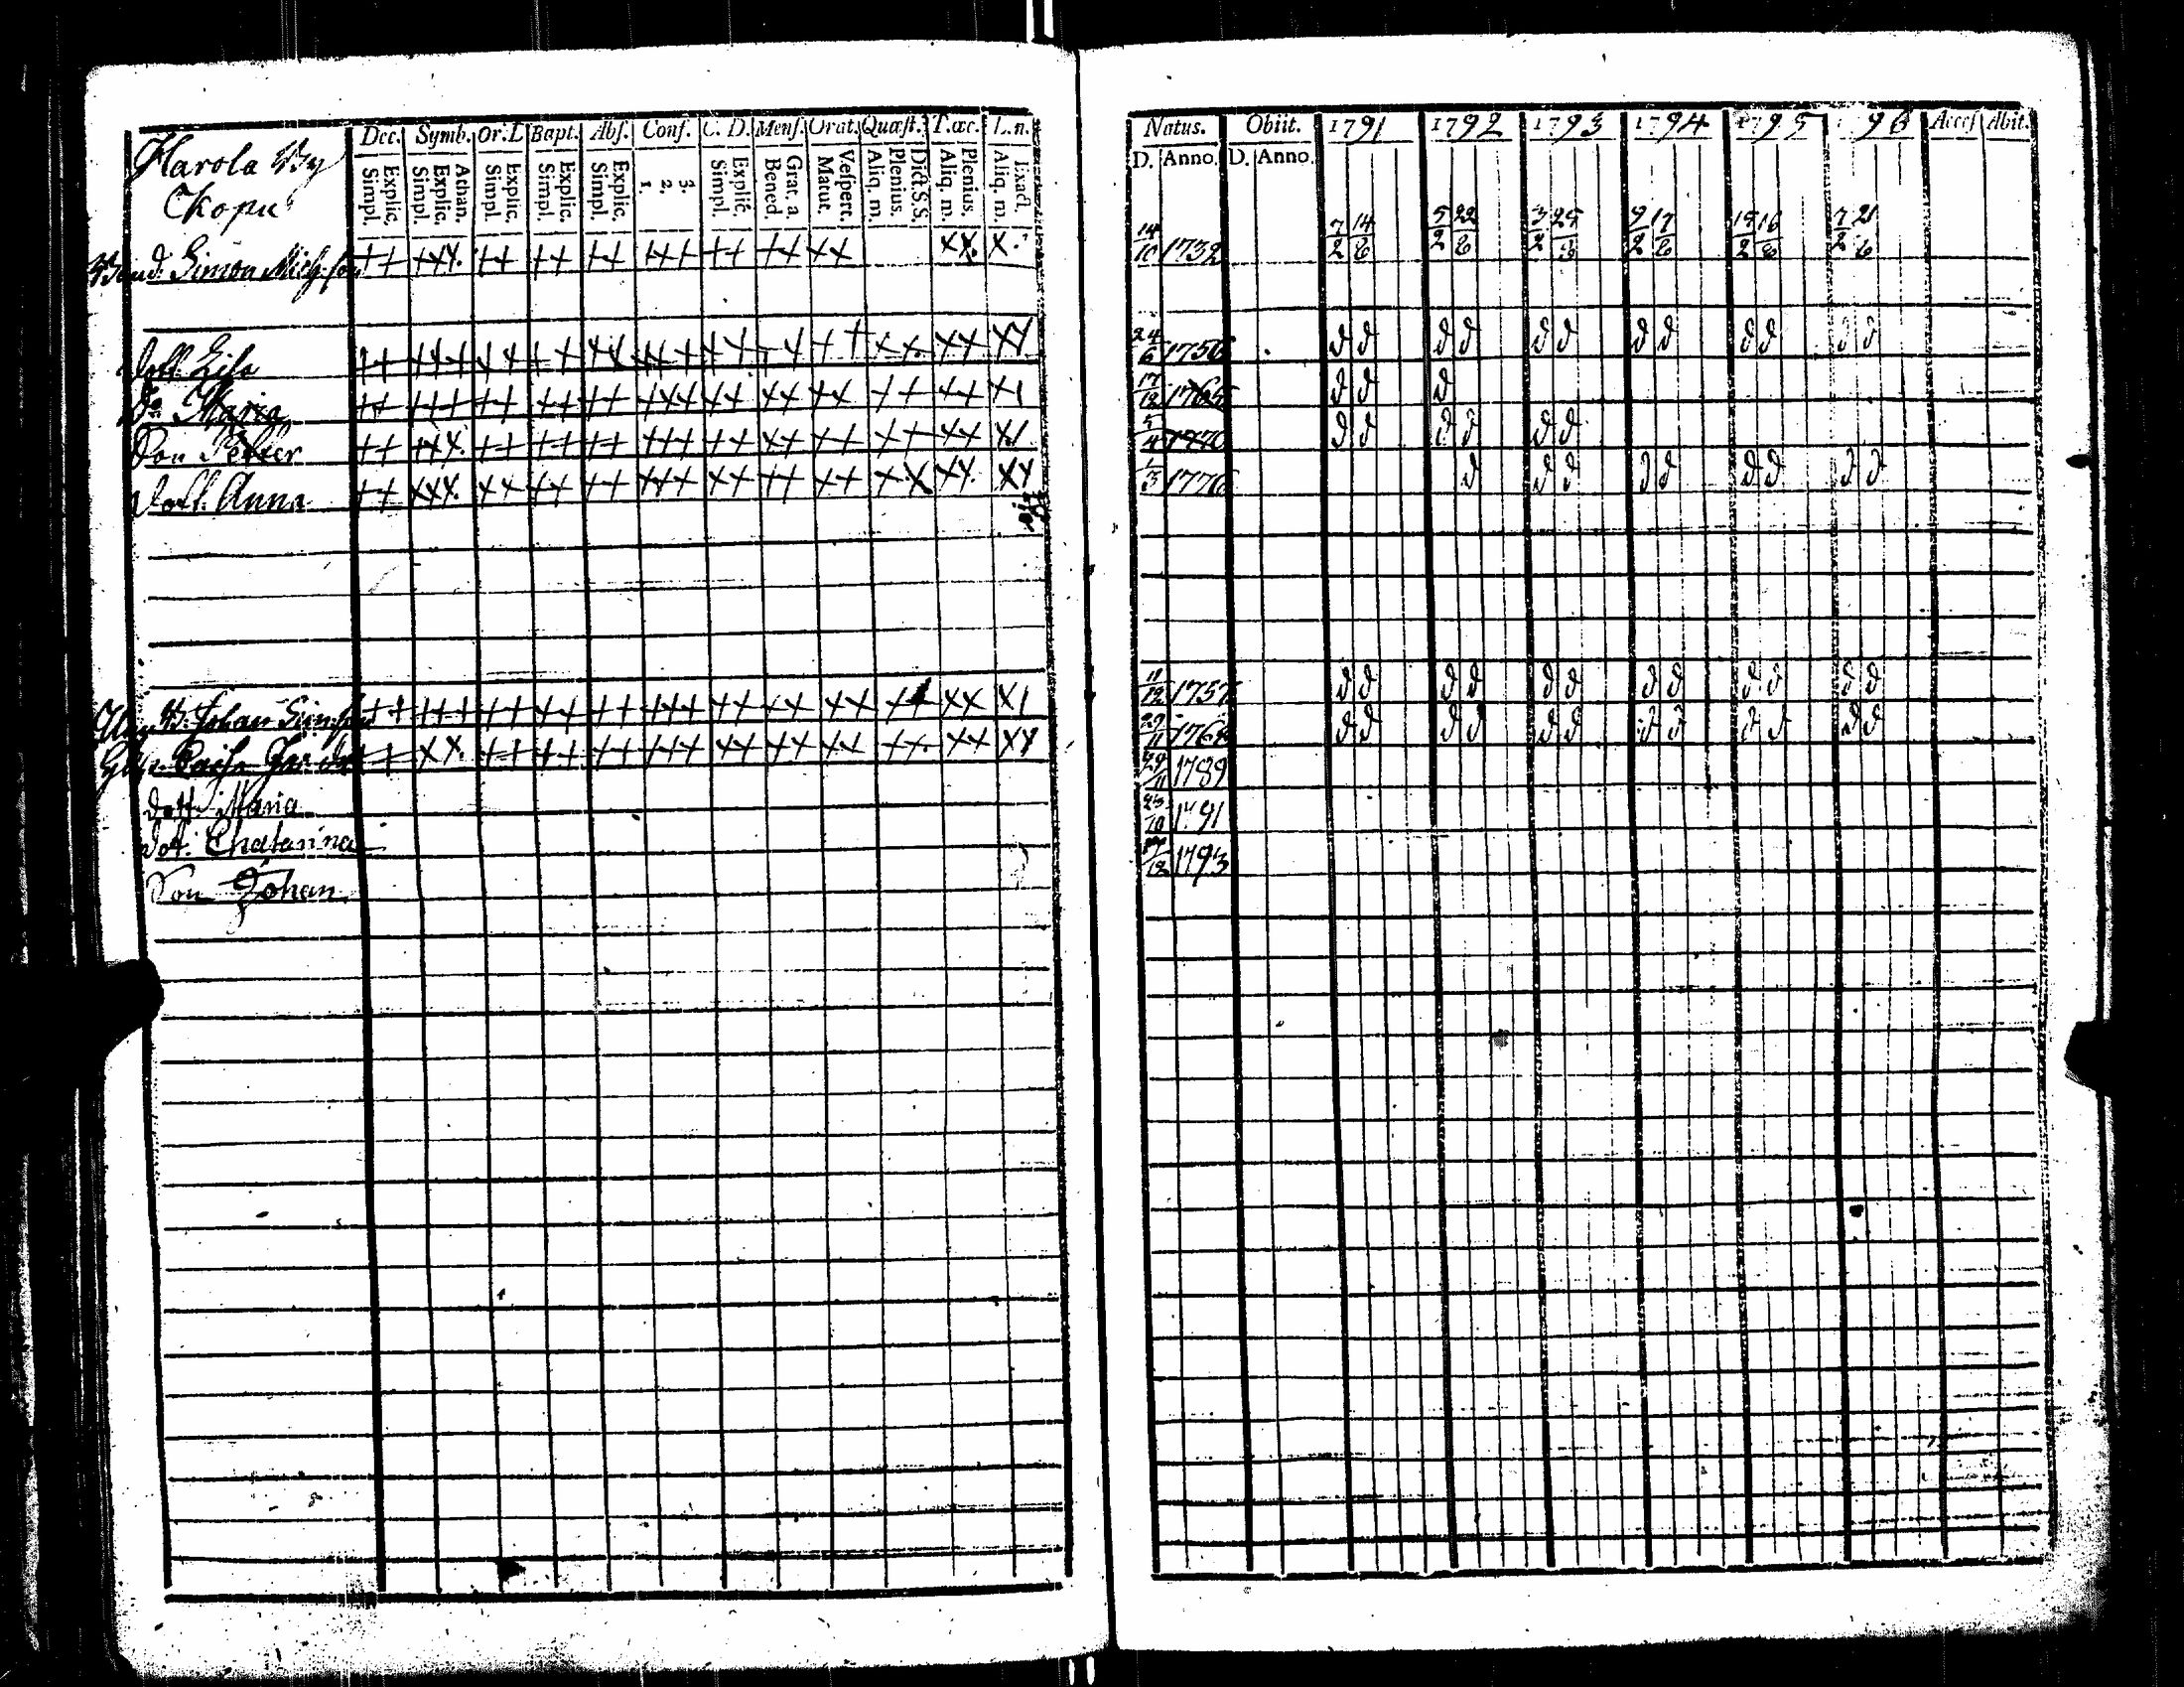 Harola By
Ckopu
Dec. Symb. Or. L Bapt. Abs. Conf. C. D. Mens. Orat. Quæst. T.œc. L.n.
Explic. Simpl. Athan. Explic. Simpl. Explic. Simpl. Explic. Simpl. Explic. Simpl. 3. 2. 1. Explic. Simpl. Grat. a Bened. Vespert. Matut. Dict.S.S. Plenius. Aliq. m. Plenius. Aliq. m. Exact. Aliq. m.
Bond. Simon Mich:son ++ +++. ++ ++ ++ +++ ++ ++ ++ xx. x.
dott. Lisa ++ +++ ++ ++ ++ +++ ++ ++ ++ ++. ++ x+
Do Maria ++ +++ ++ ++ ++ +++ ++ ++ ++ ++ ++ x1
Son Petter ++ +++. ++ ++ ++ +++ ++ ++ ++ ++ ++ x1
dott. Anna ++ +++. ++ ++ ++ +++ ++ ++ ++ ++ ++. x+
B: Johan Sim:son ++ +++ ++ ++ ++ +++ ++ ++ ++ ++ xx x1
Caisa ++ xx. ++ ++ ++ +++ ++ ++ ++ ++. ++ x+
dott. Maria
dot. Chatarina
Son Johan
Natus. Obiit. 1791 1792 1793 1794 1795 1796 Access Abit.
D. Anno. D. Anno.
14/10 1732 7/2 14/6 5/2 22/6 3/2 25/3 9/2 17/6 15/2 16/6 7/2 21/6
24/6 1756 d d d d d d d d d d d d
17/12 1765 d d d
5/4 1770 d d d d d d
1/3 1776 d d d d d d d d d
11/12 1757 d d d d d d d d d d d d
29/11 1768 d d d d d d d d d d d d
29/11 1789
25/10 1791
27/12 1793